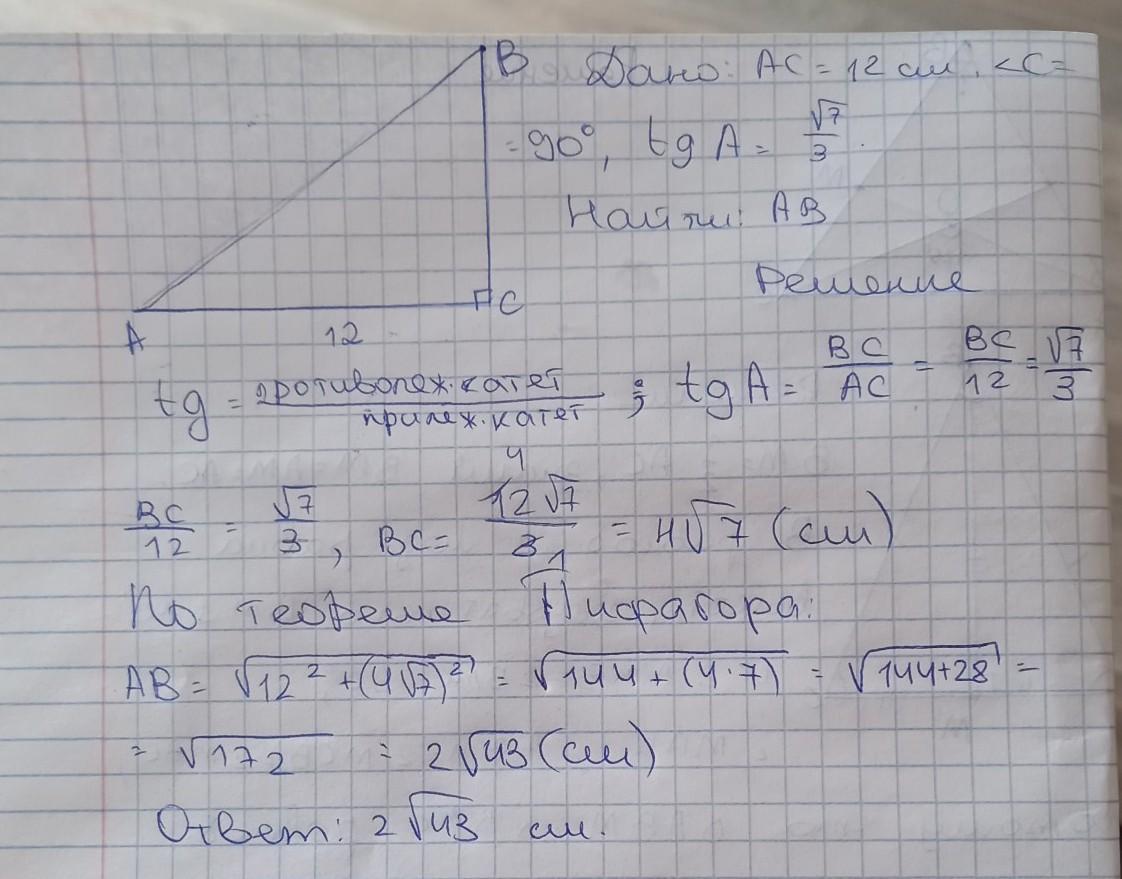 B Дано: AC = 12 см, <C=
=90°, tg A = √7/3.
Найти: AB
Решение
A 12 C
tg = противолеж.катет/прилеж.катет ; tg A = BC/AC = BC/12 = √7/3
BC/12 = √7/3, BC = 12√7/3 = 4√7 (см)
4 1
По теореме Пифагора:
AB = √(12² + (4√7)²) = √(144 + (4·7)) = √(144+28) =
= √172 = 2√43 (см)
Ответ: 2√43 см.